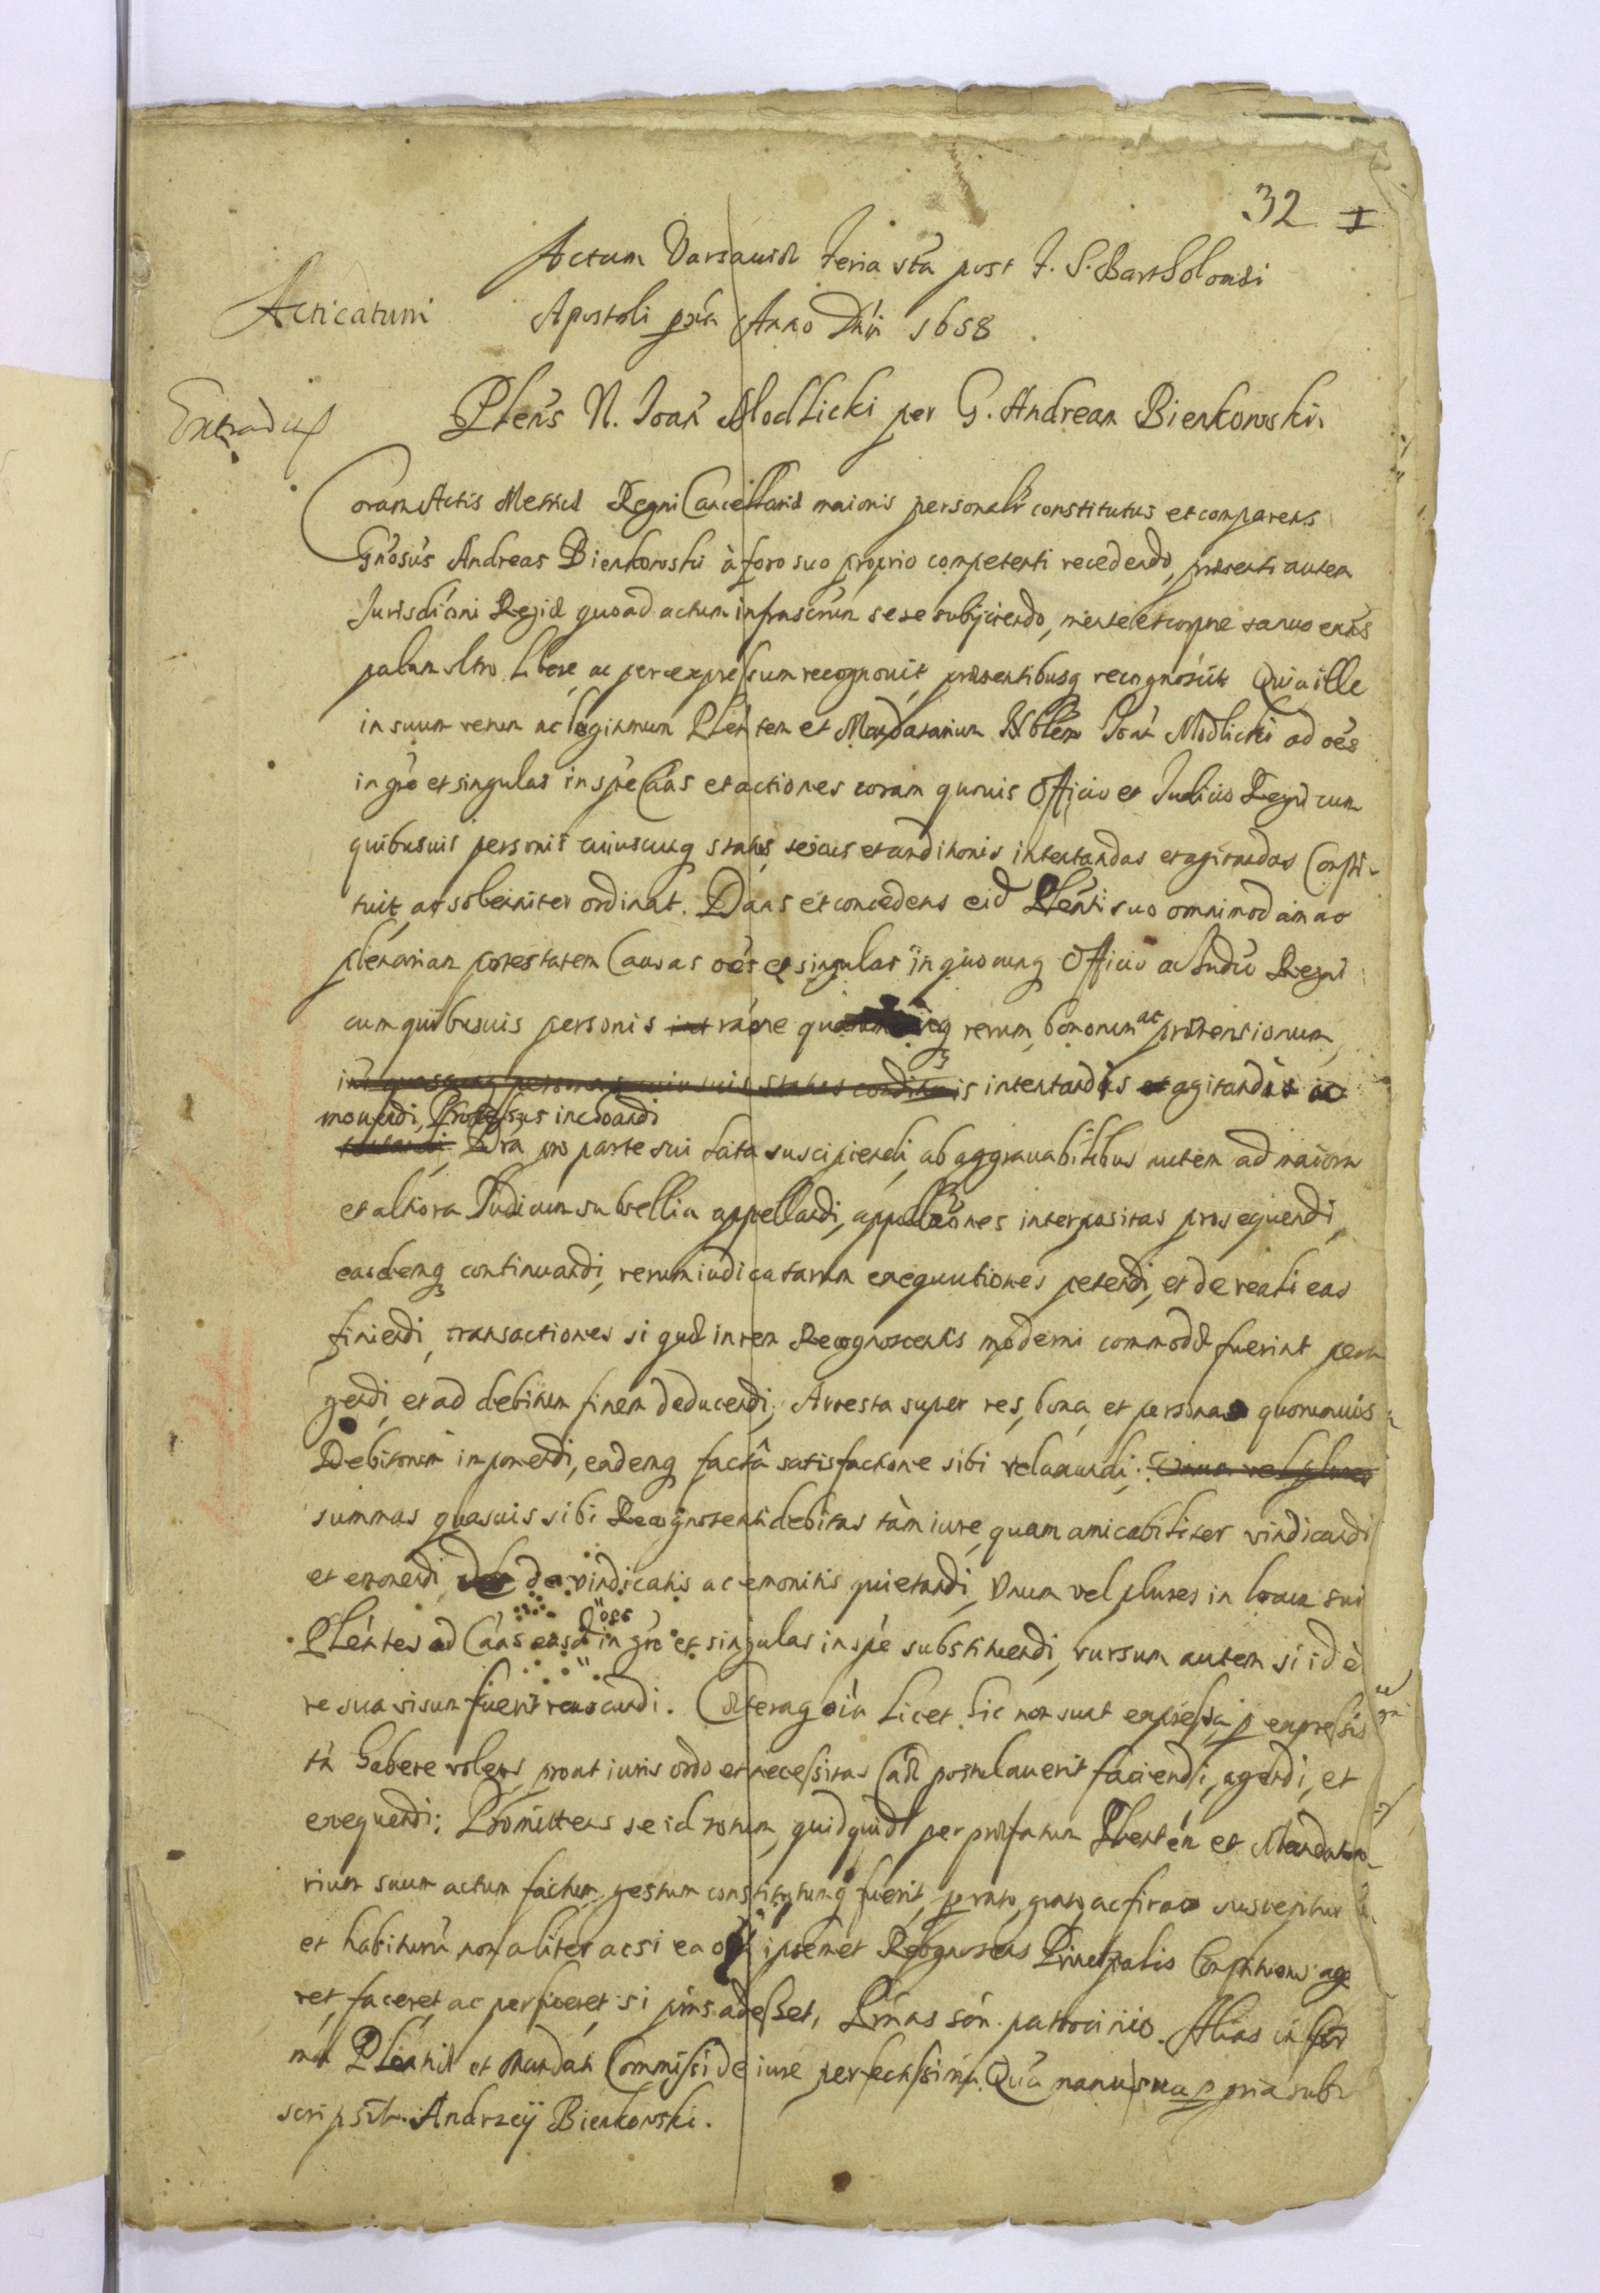 32 I
Actum Varsauiæ Feria 6ta post F. S. Bartholomæi
Acticatum Apostoli pxa Anno Dni 1658
Extradit
Plens N. Joan Modlicki per G. Andream Bienkowski.
Coram Actis Metrices Regni Cancellariæ maioris personalr constitutus et comparens
Gnosus Andreas Bienkowski à foro suo proprio competenti recedendo, præsenti autem
Jurisdicioni Regiæ quoad actum infrascrum sese subijciendo, mente et corpore sanus exns
palam ultro libere, ac per expressum recognouit, præsentibusq recognoscit Quia ille
in suum verum ac legitimum Plentem et Mandatarium Nblem Joan Modlicki ad oes
in gre et singulas in spe Cãas et actiones coram quouis Officio et Judicio Regni cum
quibusuis personis cuiuscunq status sexus et conditionis intentandas et agitandas Consti-
tuit, ac solenniter ordinat. Dans et concedens eid Plenti suo omnimodam ac
plenariam potestatem Causas oes et singulas in quocunq Officio ac Judicio Regni
cum quibusuis personis int raone rerum, bonorum ac prætensionum,
int quascunq personas cuiusuis status conditionis intentandas et agitandas ac
mouendi, Processus inchoandi
Dra pro parte sui lata suscipiendi, ab aggrauabilibus autem ad maiora
et altiora Judiciorum subsellia appellandi, appellaones interpositas prosequendi,
easdemq continuandi, rerum iudicatarum exequutiones petendi, et de reali eas
finiendi, transactiones si quæ in rem Recognoscentis moderni commodæ fuerint pera
gendi, et ad debitum finem deducendi, Arresta super res, bona, et personas quorumuis
Debitorum imponendi, eademq factâ satisfactione sibi relaxandi; Unum vel plures
summas quasuis sibi Recognoscenti debitas tàm iure, quam amicabiliter vindicandi
et exonerandi, de vindicatis ac emonitis quietandi, Unum vel plures in locum sui
Plentes ad Cãas easd oes in gre et singulas in spe substituendi, rursum autem si id è
re sua visum fuerit reuocandi. Cæteraq oia licet hic non sunt expressa, p expressis
ta habere volens, prout iuris ordo et necessitas Cãæ postulauerit faciendi, agendi, et
exequendi: Promittens se id totum, quidquid per præfatum Plentem et Mandata-
rium suum actum factum, gestum constitutumq fuerit, p rato, grato, ac firmo suscepturu
et habituru non aliter ac si ea oia ipsemet Recognoscens Principalis Constituens age
ret, faceret, ac perficeret, si pns adesset, patrocinio. Alias in for
ma Plentiæ et Mandati Commissi de iure perfectissima. Qua manu sua ppria sub
scripsit. Andrzeÿ Bienkowski.